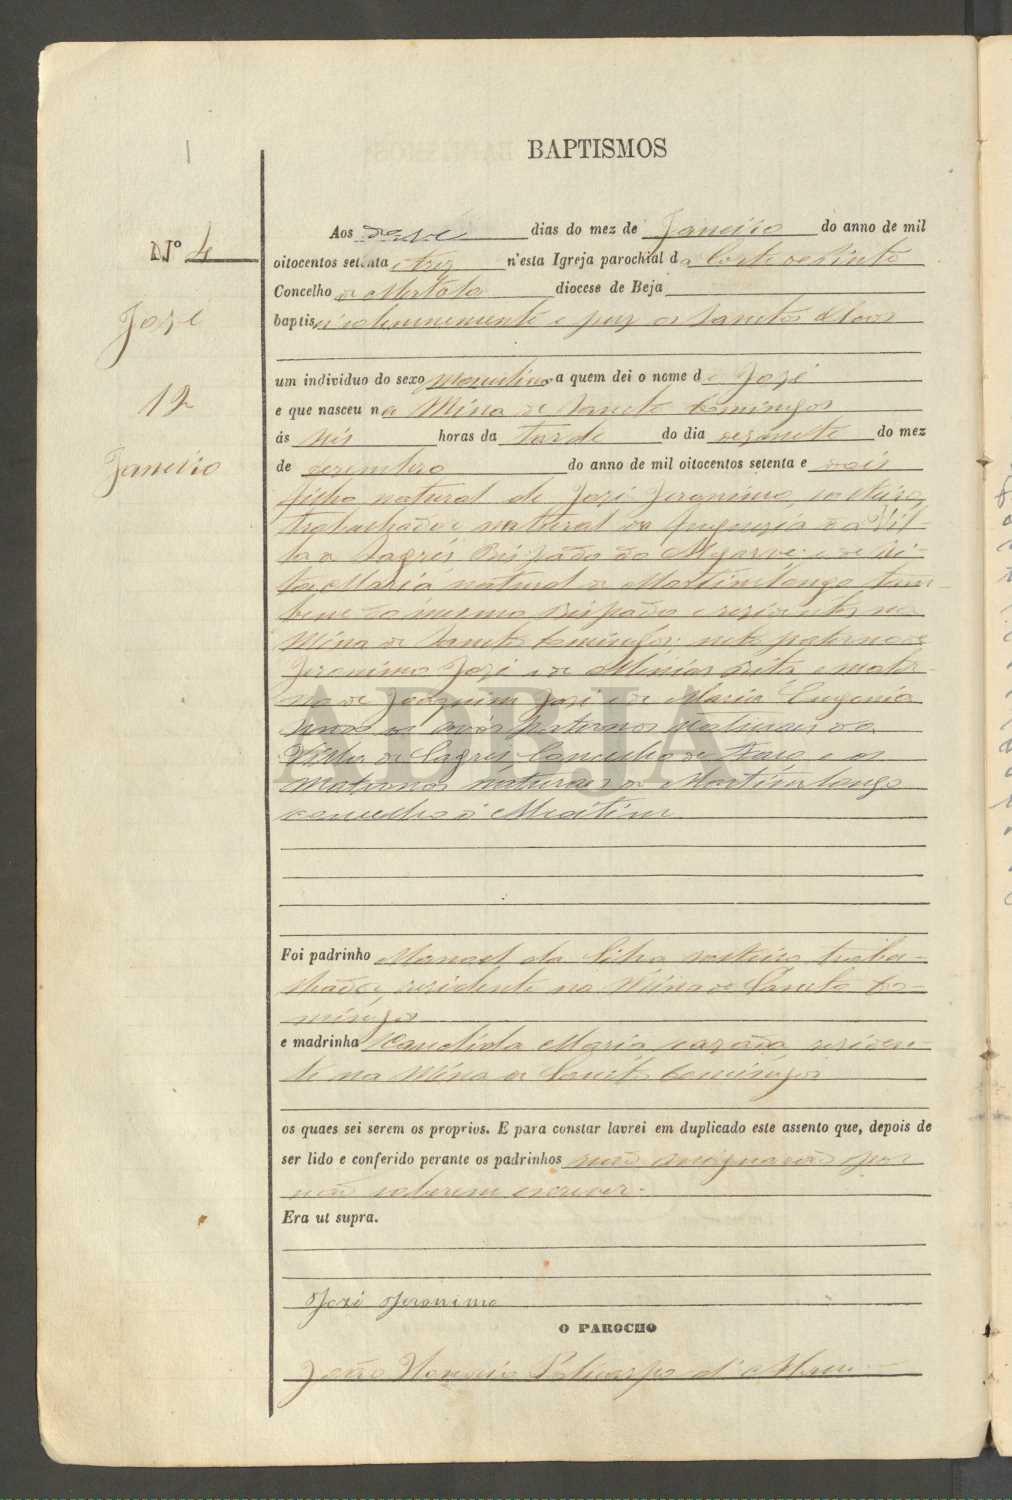 BAPTISMOS
Nº 4
José
12
Janeiro
Aos doze dias do mez de Janeiro do anno de mil
oitocentos setenta e trez n'esta Igreja parochial da Corte do Pinto
Concelho de Mertola diocese de Beja
baptisei solemnemente e puz os Sanctos Oleos
um individuo do sexo masculino a quem dei o nome de José
e que nasceu na Mina de Sancto Domingos
ás seis horas da tarde do dia dezanete do mez
de dezembro do anno de mil oitocentos setenta e dois
filho natural de José Jeronimo, solteiro,
trabalhador natural da freguezia da Vil-
la de Sagres Bispado do Algarve e de Ri-
ta Maria natural de Martimlongo tam-
bem do mesmo Bispado e residentes na
Mina de Sancto Domingos: neto paterno de
Jeronimo José e de Rita e mater-
no de Joaquim José e de Maria Eugenia
os avós paternos naturaes da
Villa de Sagres Concelho de e os
maternos naturaes de Martimlongo
concelho d'Alcoitim
ADBJA
Foi padrinho Manoel da Silva solteiro traba-
lhador, residente na Mina de Sancto Do-
mingos
e madrinha Candida Maria cazada residen-
te na Mina de Sancto Domingos
os quaes sei serem os proprios. E para constar lavrei em duplicado este assento que, depois de
ser lido e conferido perante os padrinhos não assignarão por
não saberem escrever.
Era ut supra.
José Jeronimo
O PAROCHO
João Policarpo